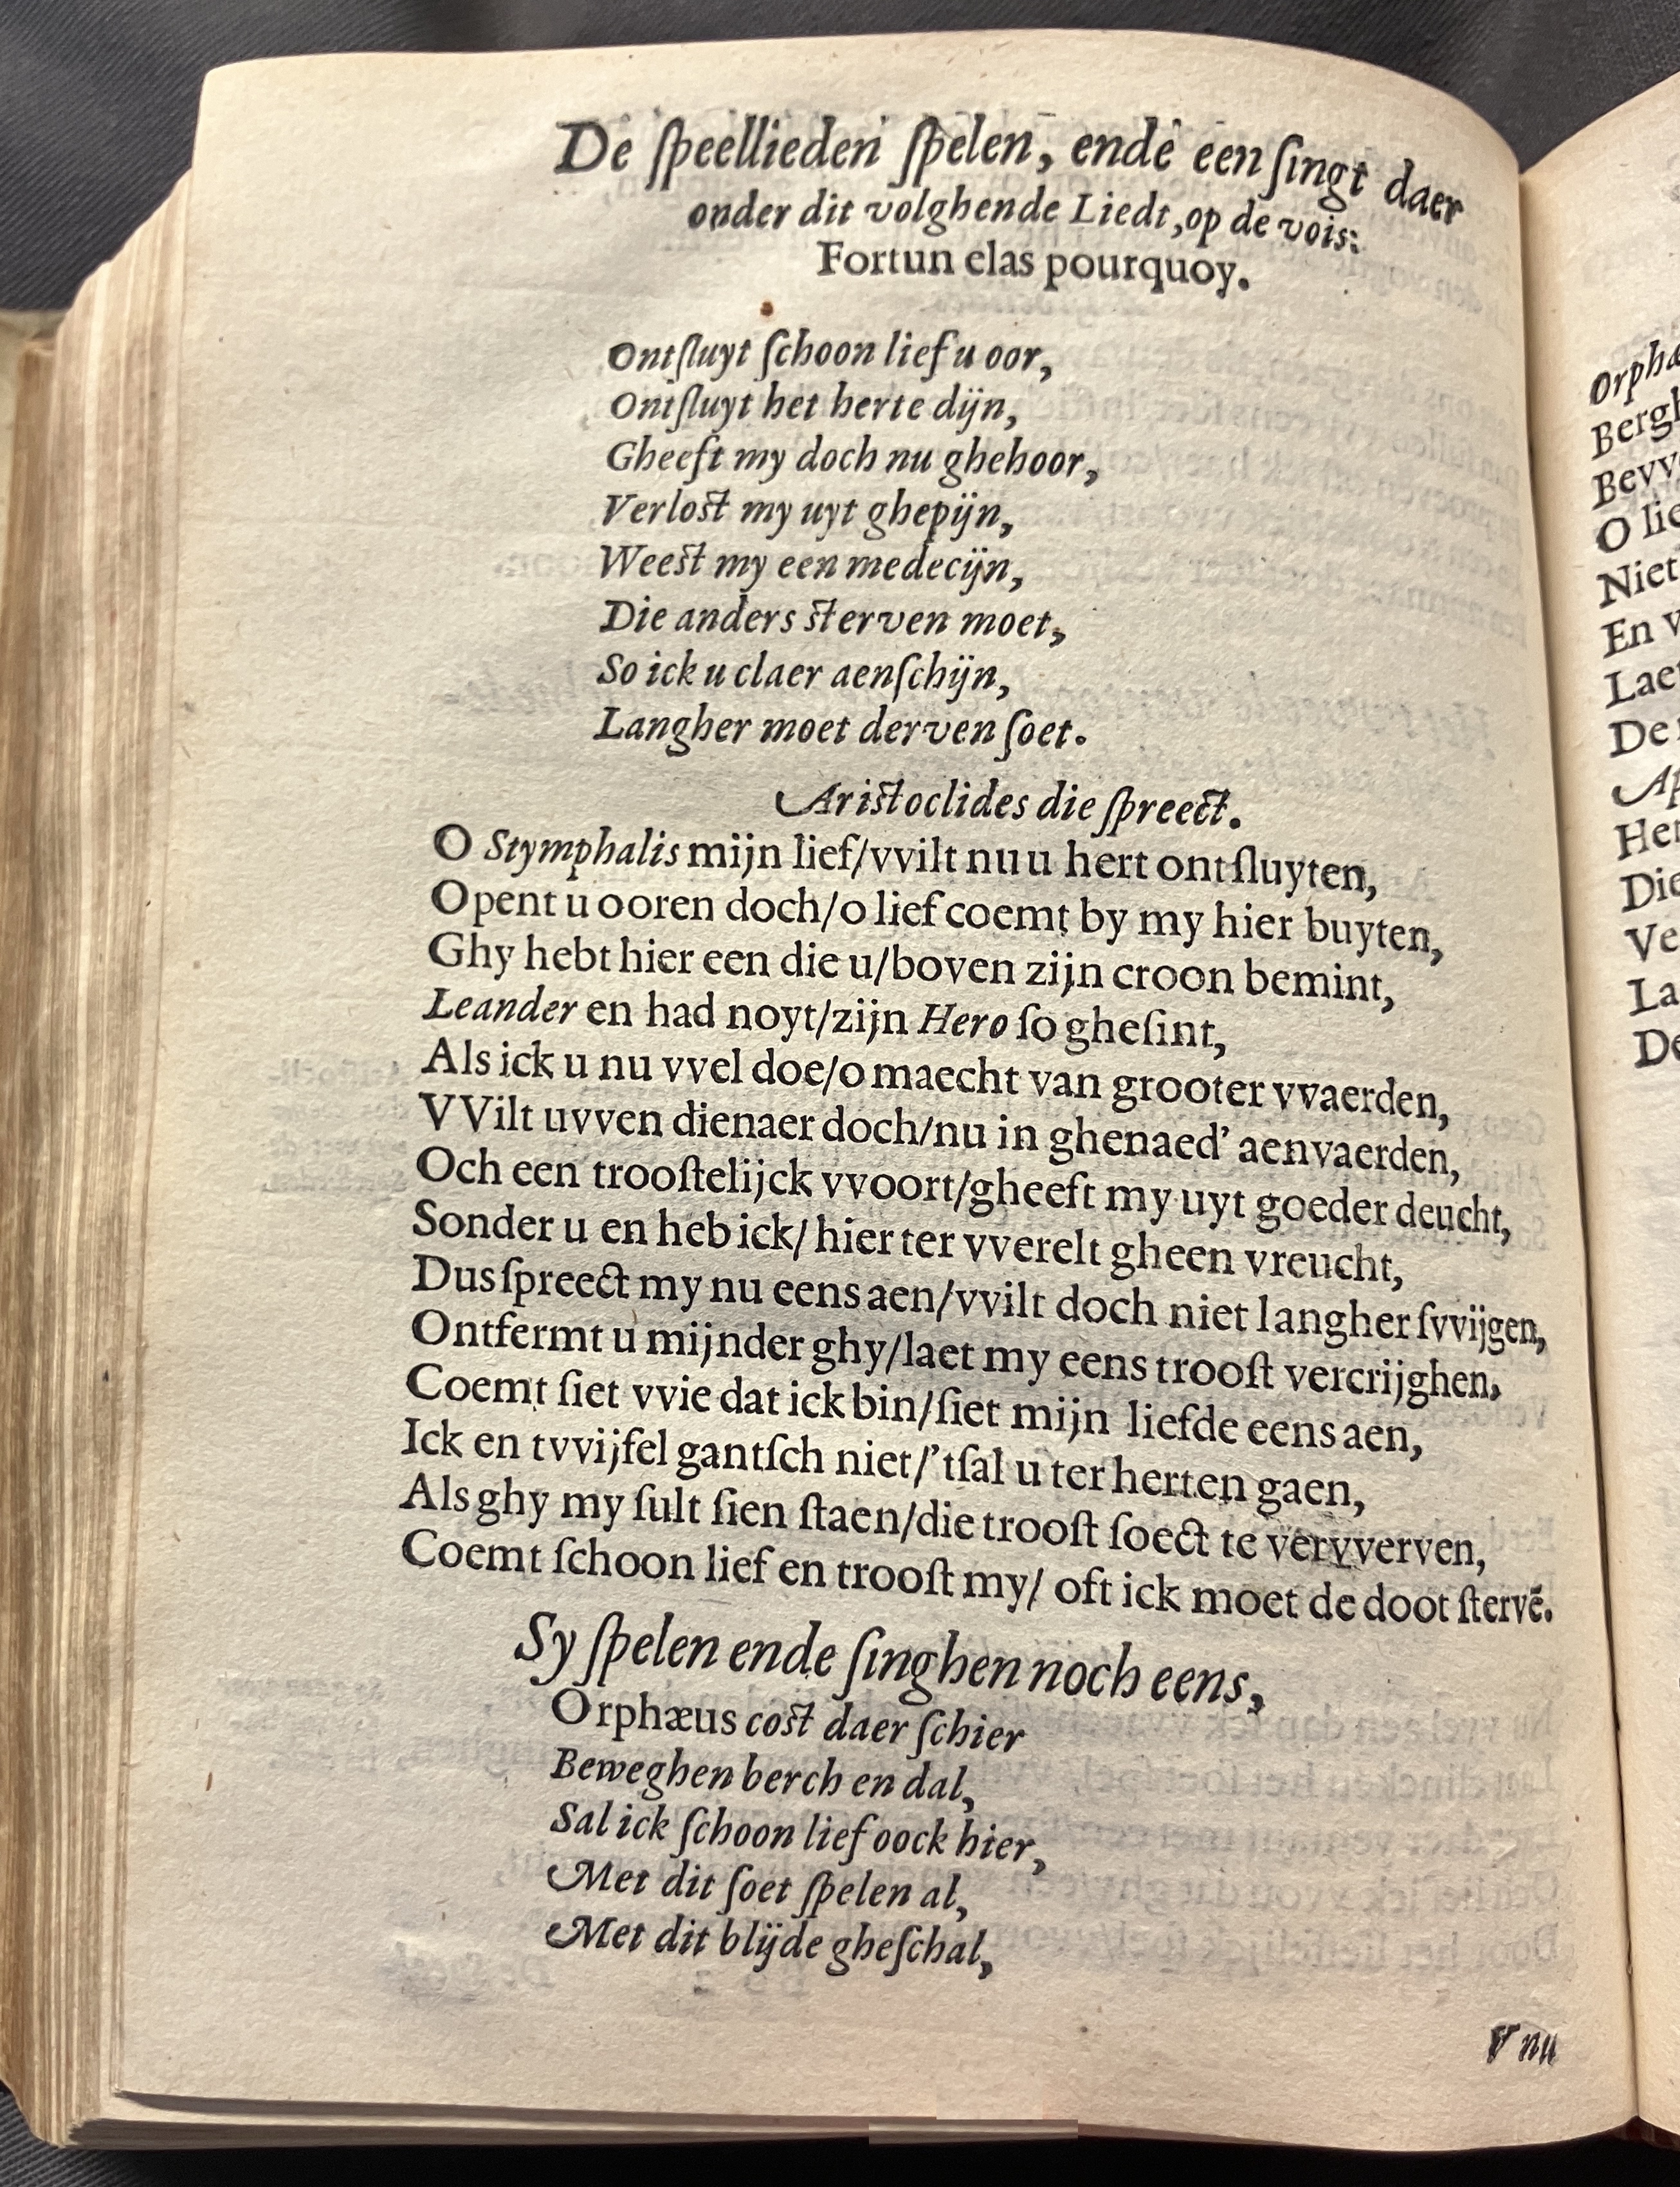 De ſpeellieden ſpelen, ende een ſingt daer
onder dit volghende Liedt, op de vois:
Fortun elas pourquoy.
Ontſluyt ſchoon lief u oor,
Ontſluyt het herte dijn,
Gheeft my doch nu ghehoor,
Verlost my uyt ghepijn,
Weest my een medecijn,
Die anders sterven moet,
So ick u claer aenſchijn,
Langher moet derven ſoet.
Aristoclides die ſpreect.
O Stymphalis mijn lief/vvilt nu u hert ontſluyten,
Opent u ooren doch/o lief coemt by my hier buyten,
Ghy hebt hier een die u/boven zijn croon bemint,
Leander en had noyt/zijn Hero ſo gheſint,
Als ick u nu vvel doe/o maecht van grooter vvaerden,
VVilt uvven dienaer doch/nu in ghenaed' aenvaerden,
Och een trooſtelijck vvoort/gheeft my uyt goeder deucht,
Sonder u en heb ick/hier ter vverelt gheen vreucht,
Dus ſpreect my nu eens aen/vvilt doch niet langher ſvvijgen,
Ontfermt u mijnder ghy/laet my eens trooſt vercrijghen,
Coemt ſiet vvie dat ick bin/ſiet mijn liefde eens aen,
Ick en tvvijfel gantſch niet/'tſal u ter herten gaen,
Als ghy my ſult ſien ſtaen/die trooſt ſoect te vervverven,
Coemt ſchoon lief en trooſt my/ oft ick moet de doot ſtervē.
Sy ſpelen ende ſinghen noch eens,
Orphæus cost daer ſchier
Beweghen berch en dal,
Sal ick ſchoon lief oock hier,
Met dit ſoet ſpelen al,
Met dit blijde gheſchal,
V nu
Orphæ
Bergh
Bevv
O lie
Niet
En v
Laet
De
Ap
Her
Die
Ve
La
De